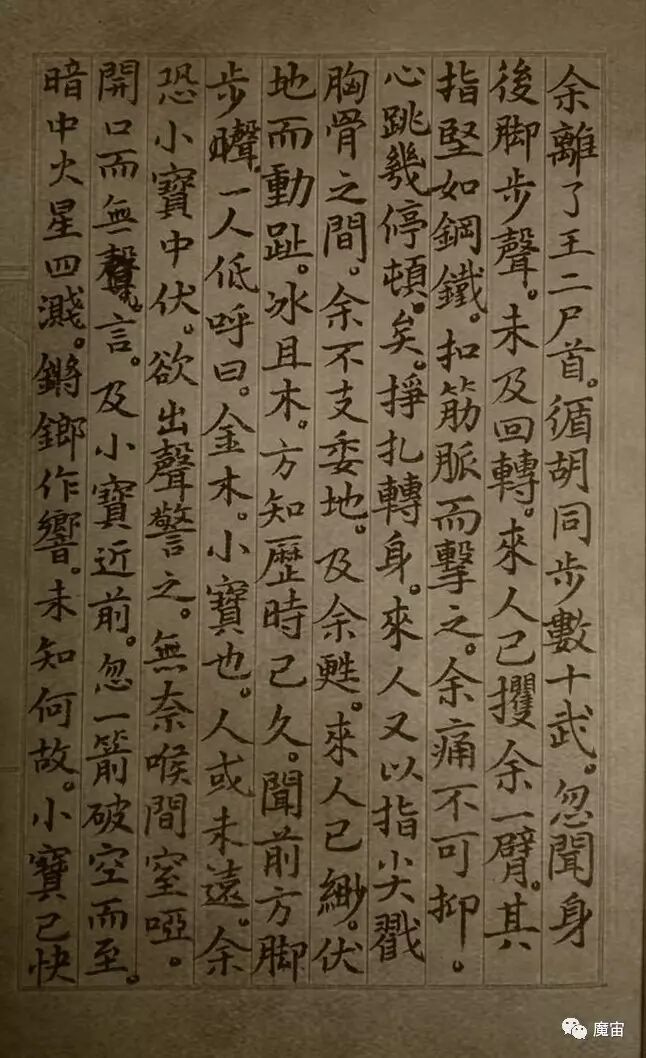 余離了王二尸首。循胡同步數十武。忽聞身
後脚步聲。未及回轉。來人已攫余一臂。其
指堅如鋼鐵。扣筋脈而擊之。余痛不可抑。
心跳幾停頓。矣。掙扎轉身。來人又以指尖戳
胸骨之間。余不支委地。及余甦。來人已緲。伏
地而動趾。冰且木。方知歷時已久。聞前方脚
步聲。一人低呼曰。金木。小寶也。人或未遠。余
恐小寶中伏。欲出聲警之。無奈喉間窒啞。
開口而無聲言。及小寶近前。忽一箭破空而至。
暗中火星四濺。鏘鎯作響。未知何故。小寶已快
魔宙